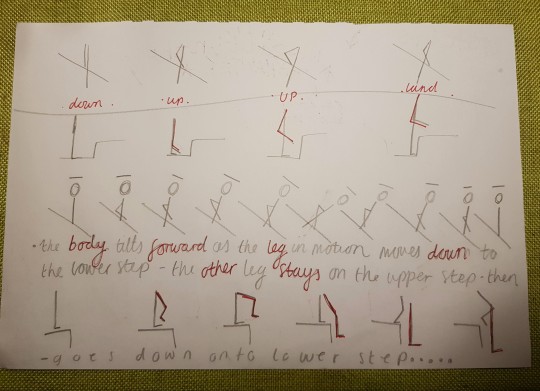 . down .
. up .
. UP .
. land .
. the body tilts forward as the leg in motion moves down to
the lower step - the other leg stays on the upper step - then
- goes down onto lower step.....